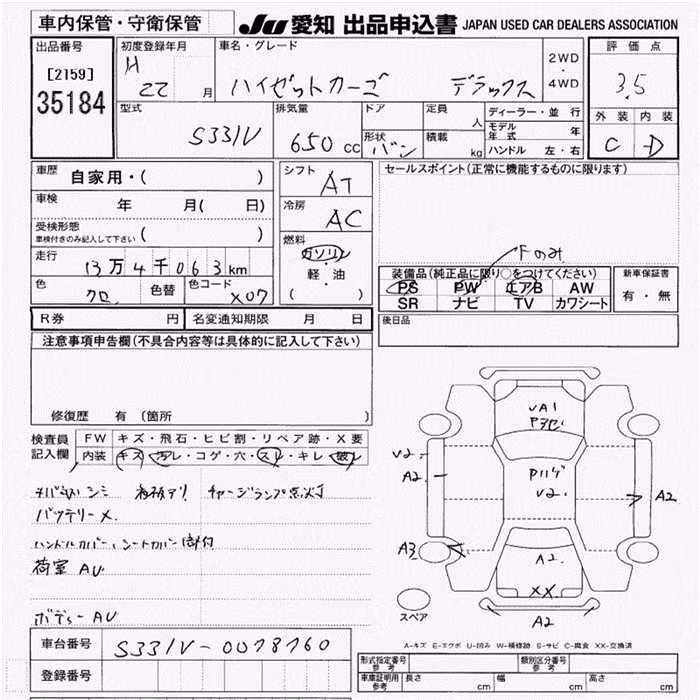 車内保管・守衛保管
JU 愛知 出品申込書 JAPAN USED CAR DEALERS ASSOCIATION
出品番号
[2159]
35184
初度登録年月
H 22 月
車名・グレード
ハイゼットカーゴ デラックス
2WD
・
4WD
評価点
3.5
型式
S331V
排気量
650 cc
ドア
形状
バン
定員
人
積載
kg
ディーラー・並行
モデル年式 年
ハンドル 左・右
外装 内装
C D
車歴
自家用・( )
車検
年 月( 日)
受検形態
車検付きのみ記入して下さい
( )
走行
13万4千063km
色
クロ
色替
色コード
X07
シフト
AT
冷房
AC
燃料
ガソリン
・
軽・油
( )
セールスポイント(正常に機能するものに限ります)
Fのみ
装備品(純正品に限り○をつけてください)
PS PW エアB AW
SR ナビ TV カワシート
新車保証書
有・無
R券 円
名変通知期限 月 日
後日品
注意事項申告欄(不具合内容等は具体的に記入して下さい)
修復歴 有(箇所 )
検査員
記入欄
FW キズ・飛石・ヒビ割・リペア跡・X要
内装 キズ・汚レ・コゲ・穴・スレ・キレ・破レ
シミ チャージランプ点灯
バッテリーX
ハンドルカバー、シートカバー
荷室 AU
ボディーAU
UA1
U2
A2
U2
A2
A3
A2
XX
A2
スペア
A-キズ E-エクボ U-凹み W-補修跡 S-サビ C-腐食 XX-交換済
車台番号
S331V-0078760
登録番号
形式指定番号
参考
類別区分番号
参考
車庫証明用
参考
長さ cm
幅 cm
高さ cm